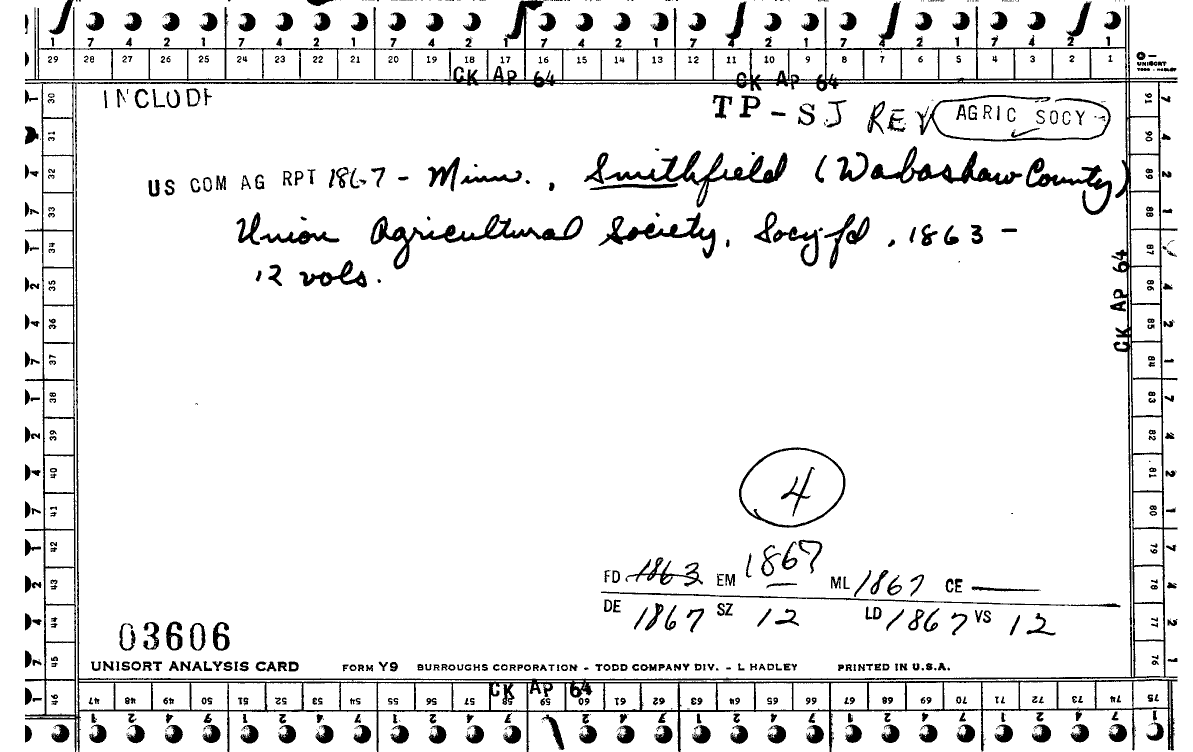 7 4 2 1 7 4 2 1 7 4 2 1 7 4 2 1 7 4 2 1 7 4 2 1 7 4 2 1
29 28 27 26 25 24 23 22 21 20 19 18 17 16 15 14 13 12 11 10 9 8 7 6 5 4 3 2 1
UNISORT
TODD - HADLEY
CK AP 64
CK AP 64
INCLUDE
TP-SJ REV AGRIC SOCY
US COM AG RPT 1867 - Minn., Smithfield (Wabashaw County)
Union Agricultural Society, Socy fd, 1863 -
12 vols.
CK AP 64
4
FD 1863 EM 1867 ML 1867 CE
DE 1867 SZ 12 LD 1867 VS 12
03606
UNISORT ANALYSIS CARD FORM Y9 BURROUGHS CORPORATION - TODD COMPANY DIV. - L HADLEY PRINTED IN U.S.A.
CK AP 64
30 31 32 33 34 35 36 37 38 39 40 41 42 43 44 45 46
47 48 49 50 51 52 53 54 55 56 57 58 59 60 61 62 63 64 65 66 67 68 69 70 71 72 73 74 75
76 77 78 79 80 81 82 83 84 85 86 87 88 89 90 91